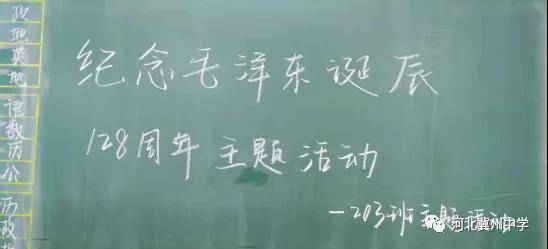 政
地
英
地
语
数
历
公
历
政
纪念毛泽东诞辰
128周年主题活动
一203班主题活动
河北冀州中学